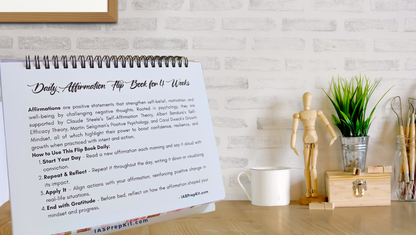 Daily Affirmation Flip Book for 4 Weeks
Affirmations are positive statements that strengthen self-belief, motivation, and
well-being by challenging negative thoughts. Rooted in psychology, they are
supported by Claude Steele's Self-Affirmation Theory, Albert Bandura's Self-
Efficacy Theory, Martin Seligman's Positive Psychology, and Carol Dweck's Growth
Mindset, all of which highlight their power to boost confidence, resilience, and
growth when practiced with intent and action.
How to Use This Flip Book Daily:
1. Start Your Day - Read a new affirmation each morning and say it aloud with
conviction.
2. Repeat & Reflect - Repeat it throughout the day, writing it down or visualizing
its impact.
3. Apply It - Align actions with your affirmation, reinforcing positive change in
real-life situations.
4. End with Gratitude - Before bed, reflect on how the affirmation shaped your
mindset and progress.
- IASPrepKit.com
IASPrepKit.com